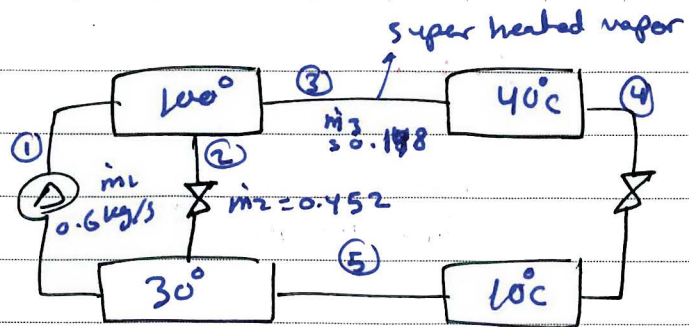 super heated vapor
100°
③
40°c
④
①
②
ṁ3
ṁ1
0.6 kg/s
ṁ2 = 0.452
⑤
30°
10°c